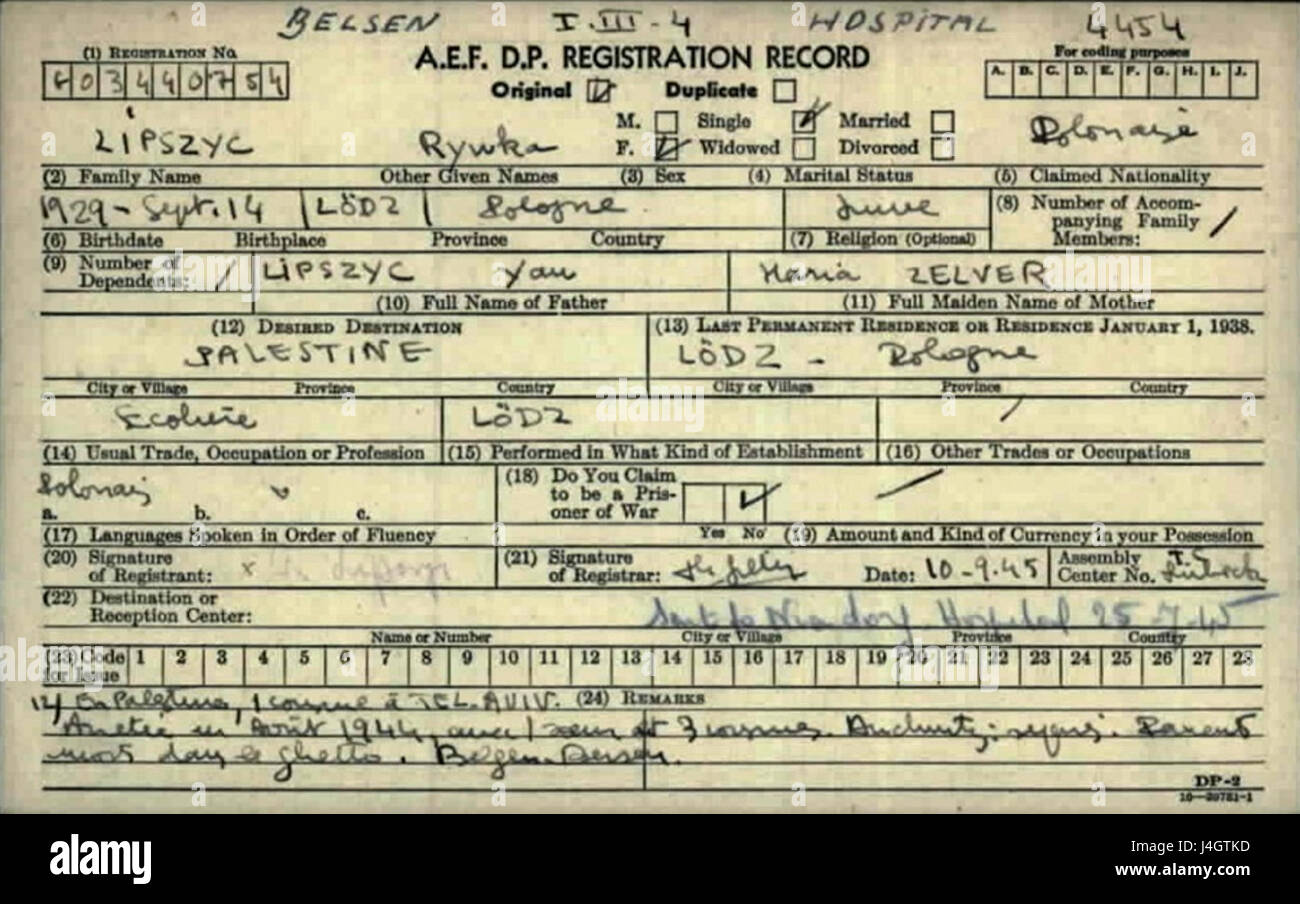 BELSEN I. III - 4 HOSPITAL 4454
(1) REGISTRATION NO. A.E.F. D.P. REGISTRATION RECORD For coding purposes
03440754 Original Duplicate A. B. C. D. E. F. G. H. I. J.
M. Single Married
LIPSZYC Rywka F. Widowed Divorced Polonaise
(2) Family Name Other Given Names (3) Sex (4) Marital Status (5) Claimed Nationality
1929 - Sept. 14 LÖDZ Pologne Juive (8) Number of Accompanying Family Members: /
(6) Birthdate Birthplace Province Country (7) Religion (Optional)
(9) Number of Dependents: / LIPSZYC Yan Maria ZELVER
(10) Full Name of Father (11) Full Maiden Name of Mother
(12) DESIRED DESTINATION (13) LAST PERMANENT RESIDENCE OR RESIDENCE JANUARY 1, 1938.
PALESTINE LÖDZ - Pologne
City or Village Province Country City or Village Province Country
Ecolière LÖDZ /
(14) Usual Trade, Occupation or Profession (15) Performed in What Kind of Establishment (16) Other Trades or Occupations
Polonais (18) Do You Claim to be a Prisoner of War
a. b. c. Yes No
(17) Languages Spoken in Order of Fluency (19) Amount and Kind of Currency in your Possession
(20) Signature of Registrant: x (21) Signature of Registrar: Date: 10-9.45 Assembly Center No.
(22) Destination or Reception Center: Hospital 25-7-45
Name or Number City or Village Province Country
(23) Code for Issue 1 2 3 4 5 6 7 8 9 10 11 12 13 14 15 16 17 18 19 20 21 22 23 24 25 26 27 28
12) En Palestine, 1 cousine à TEL. AVIV. (24) REMARKS
en Août 1944, avec 1 soeur et 3 cousines. Parents
mort dans le ghetto. Bergen-Belsen.
DP-2
16-39781-1
alamy
Image ID: J4GTKD
www.alamy.com